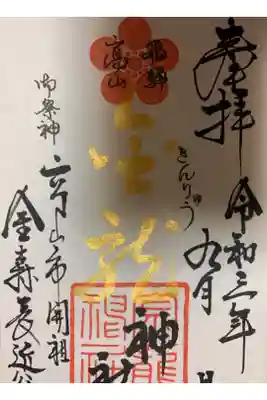 奉拝
令和三年
九月
日
きんりゅう
飛騨
高山
金龍
神社
御祭神
高山市開祖
金森長近公